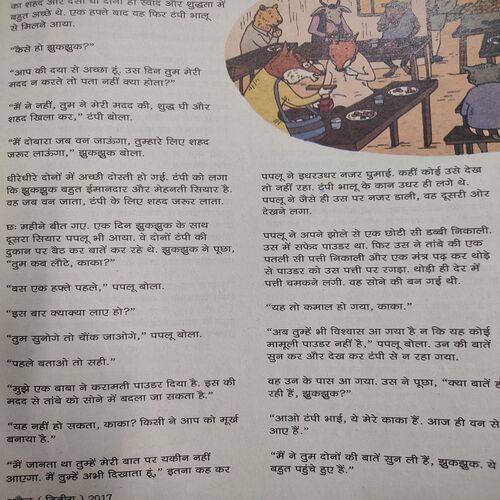 का शहद और देसी घी दोनों ही स्वाद और शुद्धता में
बहुत अच्छे थे. एक हफ्ते बाद वह फिर टंपी भालू
से मिलने आया.
“कैसे हो झुकझुक?”
“आप की दया से अच्छा हूं. उस दिन तुम मेरी
मदद न करते तो पता नहीं क्या होता?”
“मैं ने नहीं, तुम ने मेरी मदद की, शुद्ध घी और
शहद खिला कर,” टंपी बोला.
“मैं दोबारा जब वन जाऊंगा, तुम्हारे लिए शहद
जरूर लाऊंगा,” झुकझुक बोला.
धीरेधीरे दोनों में अच्छी दोस्ती हो गई. टंपी को लगा
कि झुकझुक बहुत ईमानदार और मेहनती सियार है.
वह जब वन जाता, टंपी के लिए शहद जरूर लाता.
छः महीने बीत गए. एक दिन झुकझुक के साथ
दूसरा सियार पपलू भी आया. वे दोनों टंपी की
दुकान पर बैठ कर बातें कर रहे थे. झुकझुक ने पूछा,
“तुम कब लौटे, काका?”
“बस एक हफ्ते पहले,” पपलू बोला.
“इस बार क्याक्या लाए हो?”
“तुम सुनोगे तो चौंक जाओगे,” पपलू बोला.
“पहले बताओ तो सही.”
“मुझे एक बाबा ने करामती पाउडर दिया है. इस की
मदद से तांबे को सोने में बदला जा सकता है.”
“यह नहीं हो सकता, काका? किसी ने आप को मूर्ख
बनाया है.”
“मैं जानता था तुम्हें मेरी बात पर यकीन नहीं
आएगा. मैं तुम्हें अभी दिखाता हूं,” इतना कह कर
( द्वितीय ) 2017
पपलू ने इधरउधर नजर घुमाई. कहीं कोई उसे देख
तो नहीं रहा. टंपी भालू के कान उधर ही लगे थे.
पपलू ने जैसे ही उस पर नजर डाली, वह दूसरी ओर
देखने लगा.
पपलू ने अपने झोले से एक छोटी सी डब्बी निकाली.
उस में सफेद पाउडर था. फिर उस ने तांबे की एक
पतली सी पत्ती निकाली और एक मंत्र पढ़ कर थोड़े
से पाउडर को उस पत्ती पर रगड़ा. थोड़ी ही देर में
पत्ती चमकने लगी. वह सोने की बन गई थी.
“यह तो कमाल हो गया, काका.”
“अब तुम्हें भी विश्वास आ गया है न कि यह कोई
मामूली पाउडर नहीं है,” पपलू बोला. उन की बातें
सुन कर और देख कर टंपी से न रहा गया.
वह उन के पास आ गया. उस ने पूछा, “क्या बातें हो
रही हैं, झुकझुक?”
“आओ टंपी भाई, ये मेरे काका हैं. आज ही वन से
आए हैं.”
“मैं ने तुम दोनों की बातें सुन ली हैं, झुकझुक. ये
बहुत पहुंचे हुए हैं.”